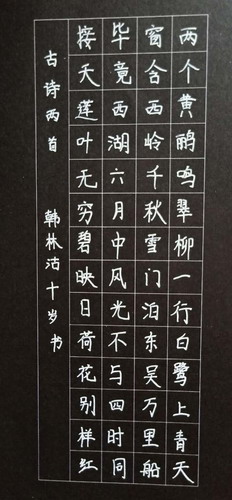 两个黄鹂鸣翠柳一行白鹭上青天
窗含西岭千秋雪门泊东吴万里船
毕竟西湖六月中风光不与四时同
接天莲叶无穷碧映日荷花别样红
古诗两首 韩林沽十岁书